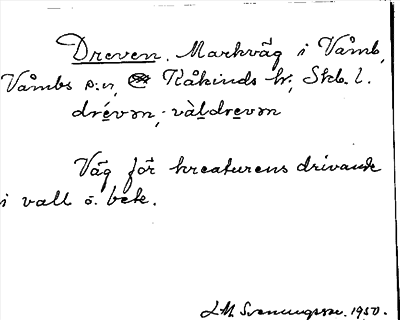 Dreven. Markväg i Våmb,
Våmbs s:n, Kåkinds hr; Skb. l.
drévən; vàldrevən
Väg för kreaturens drivande
i vall o. bete.
Svenungsson. 1950.